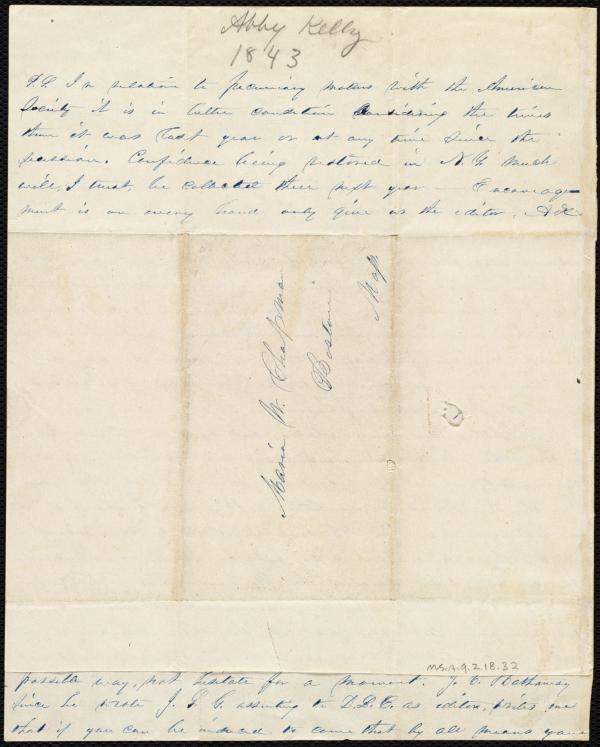 Abby Kelly
1843
P.S. In relation to pecuniary matters with the American
Society it is in better condition considering the times
than it was last year or at any time since the
secession. Confidence being restored in N.Y. much
will, I trust, be collected there next year — Encourage-
ment is on every hand only give us the editor. A.K.
Maria W. Chapman
Boston
Mass.
Ms.A.9.2.18.32
possible way, not hesitate for a moment. J. C. Hathaway
since he wrote J. S. G. assenting to D.L.C. as editor, writes me
that if you can be induced to come that by all means your